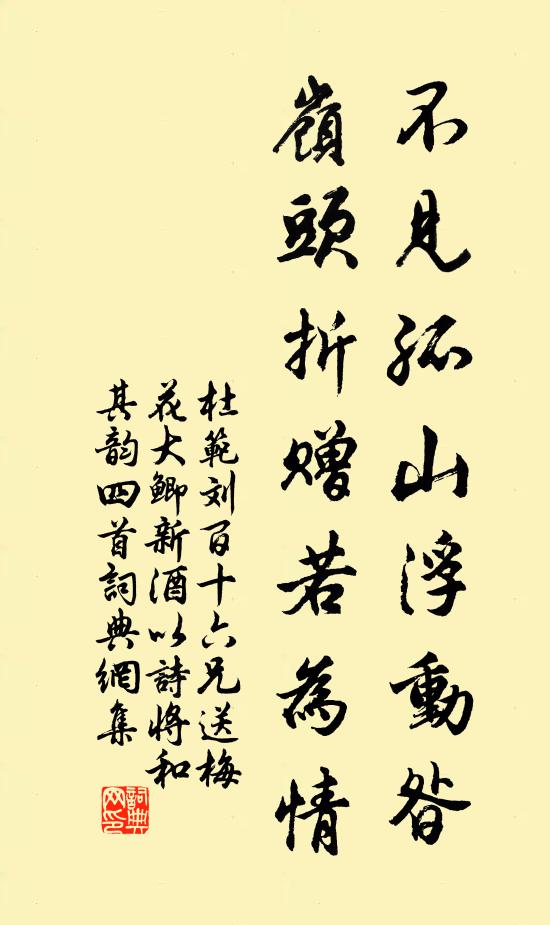 不見孤山浮動昝
嶺頭折贈若為情
杜範刘百十六兄送梅
花大鯽新酒以詩将和
其韵四首詞典網集
詞典
网印